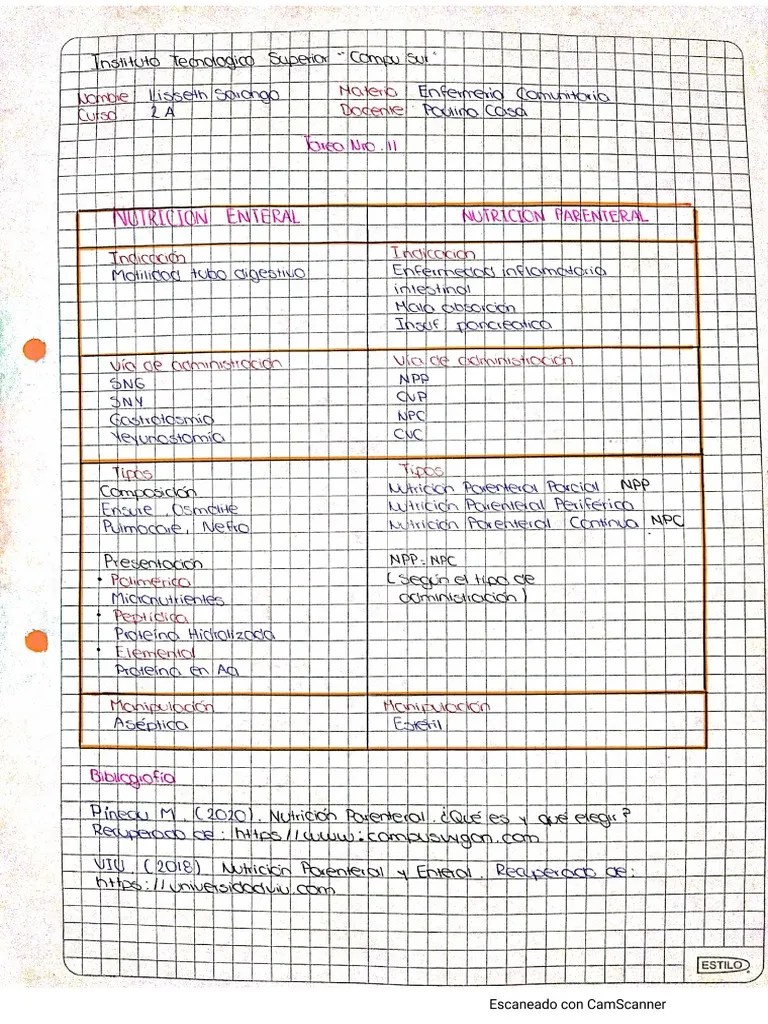 Instituto Tecnologico Superior "Compu Sur"
Nombre Lisseth Sarango Materia Enfermeria Comunitaria
Curso 2 A Docente Paulina Casa
Tarea Nro. 11
NUTRICION ENTERAL
Indicación
Motilidad tubo digestivo
NUTRICION PARENTERAL
Indicacion
Enfermedad inflamatoria
intestinal
Mala absorción
Insuf. pancréatica
Vía de administración
SNG
SNY
Gastrotosmia
Yeyunostomía
Vía de administración
NPP
CVP
NPC
CVC
Tipos
Composición
Ensure, Osmolite
Pulmocare, Nefro
Presentación
• Polimérica
Micronutrientes
• Peptídica
Proteína Hidrolizada
• Elemental
Proteína en Aa
Tipos
Nutrición Parenteral Parcial NPP
Nutrición Parenteral Periférica
Nutrición Parenteral Continua NPC
NPP: NPC
(Según el tipo de
administración)
Manipulación
Aséptica
Manipulación
Estéril
Bibliografía
M. (2020). Nutrición Parenteral. ¿Qué es y qué elegir?
Recuperado de: https//www.campusvygon.com
VIU (2018) Nutrición Parenteral y Enteral. Recuperado de:
https://universidadviu.com
ESTILO
Escaneado con CamScanner